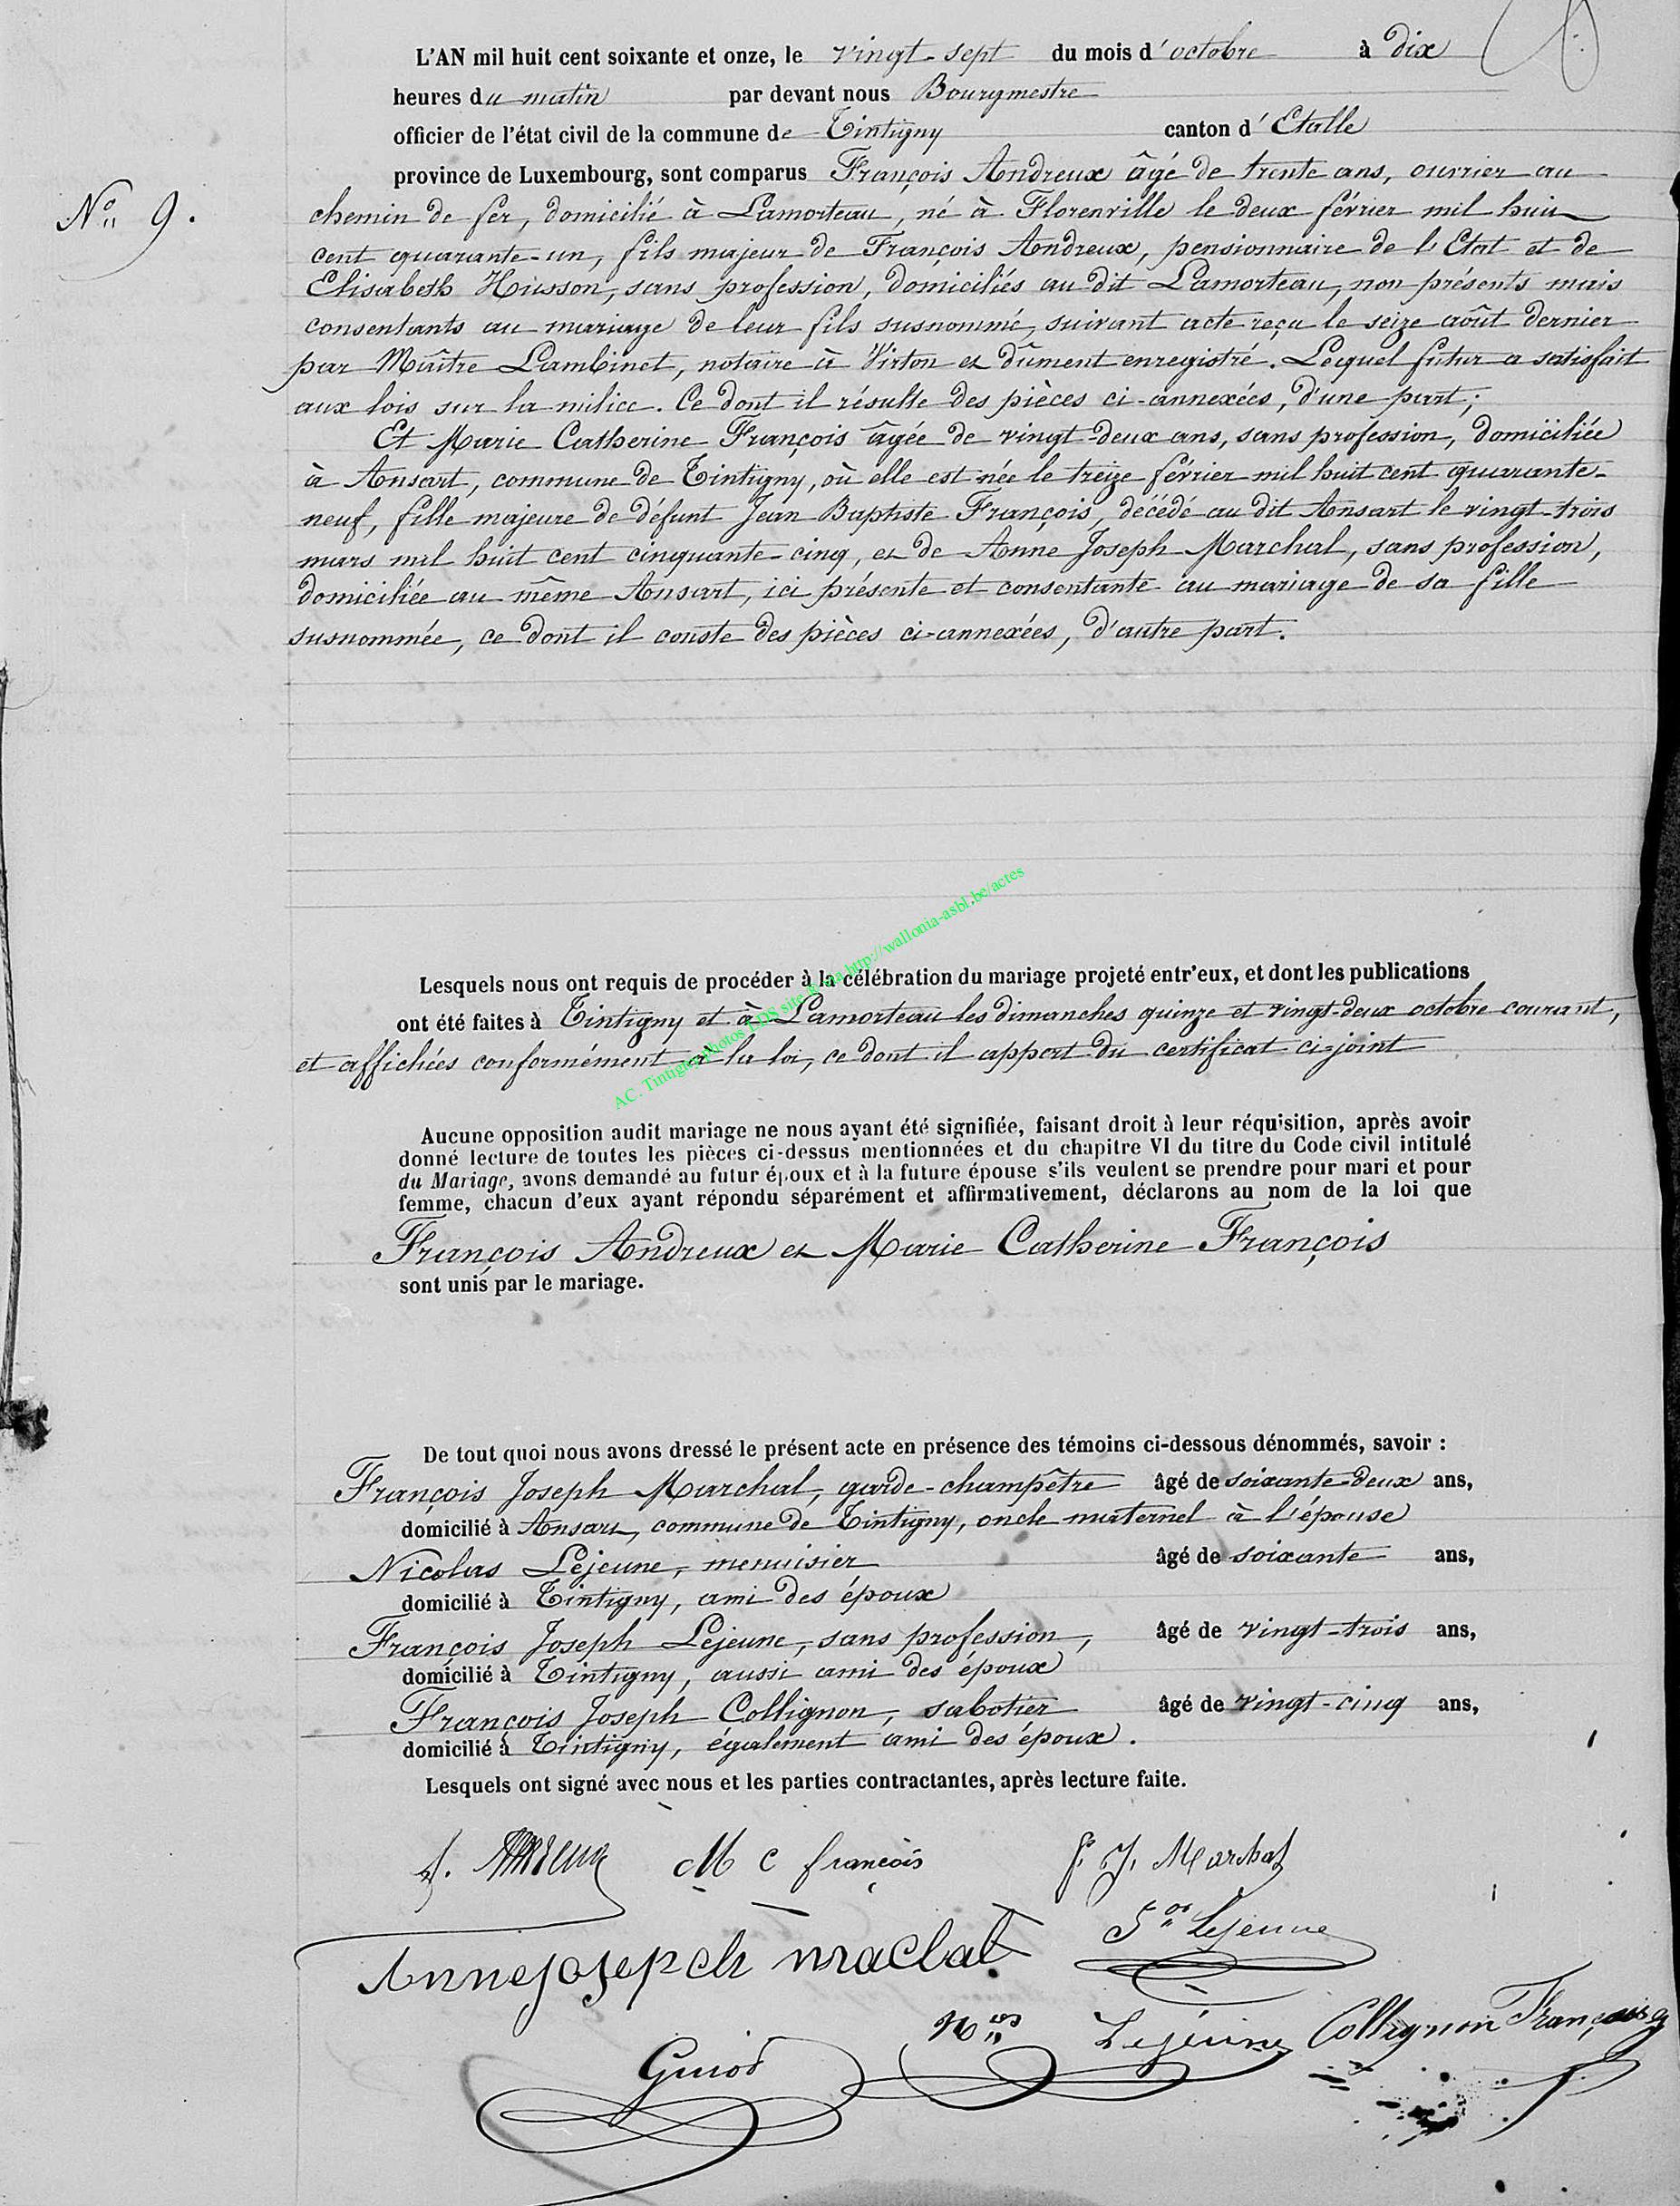 L'AN mil huit cent soixante et onze, le vingt-sept du mois d'octobre à dix
heures du matin par devant nous Bourgmestre
officier de l'état civil de la commune de Tintigny canton d'Etalle
province de Luxembourg, sont comparus François Andreux âgé de trente ans, ouvrier au
N° 9.
chemin de fer, domicilié à Lamorteau, né à Florenville le deux février mil huit
cent quarante-un, fils majeur de François Andreux, pensionnaire de l'Etat et de
Elisabeth Husson, sans profession, domiciliés au dit Lamorteau, non présents mais
consentants au mariage de leur fils susnommé, suivant acte reçu le seize août dernier
par Maître Lambinet, notaire à Virton et dûment enregistré. Lequel futur a satisfait
aux lois sur la milice. Ce dont il résulte des pièces ci-annexées, d'une part;
Et Marie Catherine François âgée de vingt-deux ans, sans profession, domiciliée
à Ansart, commune de Tintigny, où elle est née le treize février mil huit cent quarante-
neuf, fille majeure de défunt Jean Baptiste François, décédé au dit Ansart le vingt-trois
mars mil huit cent cinquante-cinq, et de Anne Joseph Marchal, sans profession,
domiciliée au même Ansart, ici présente et consentante au mariage de sa fille
susnommée, ce dont il conste des pièces ci-annexées, d'autre part.
AC. Tintigny photos LDS site & via http://wallonia-asbl.be/actes
Lesquels nous ont requis de procéder à la célébration du mariage projeté entr'eux, et dont les publications
ont été faites à Tintigny et à Lamorteau les dimanches quinze et vingt-deux octobre courant,
et affichées conformément à la loi, ce dont il appert du certificat ci-joint
Aucune opposition audit mariage ne nous ayant été signifiée, faisant droit à leur réquisition, après avoir
donné lecture de toutes les pièces ci-dessus mentionnées et du chapitre VI du titre du Code civil intitulé
du Mariage, avons demandé au futur époux et à la future épouse s'ils veulent se prendre pour mari et pour
femme, chacun d'eux ayant répondu séparément et affirmativement, déclarons au nom de la loi que
François Andreux et Marie Catherine François
sont unis par le mariage.
De tout quoi nous avons dressé le présent acte en présence des témoins ci-dessous dénommés, savoir :
François Joseph Marchal, garde-champêtre âgé de soixante-deux ans,
domicilié à Ansart, commune de Tintigny, oncle maternel à l'épouse
Nicolas Lejeune, menuisier âgé de soixante ans,
domicilié à Tintigny, ami des époux
François Joseph Lejeune, sans profession, âgé de vingt-trois ans,
domicilié à Tintigny, aussi ami des époux
François Joseph Collignon, sabotier âgé de vingt-cinq ans,
domicilié à Tintigny, également ami des époux.
Lesquels ont signé avec nous et les parties contractantes, après lecture faite.
M C françois F. J. Marchal
Lejeune
Anne josepch maclal
Nas Lejeune Collignon François
Guiot